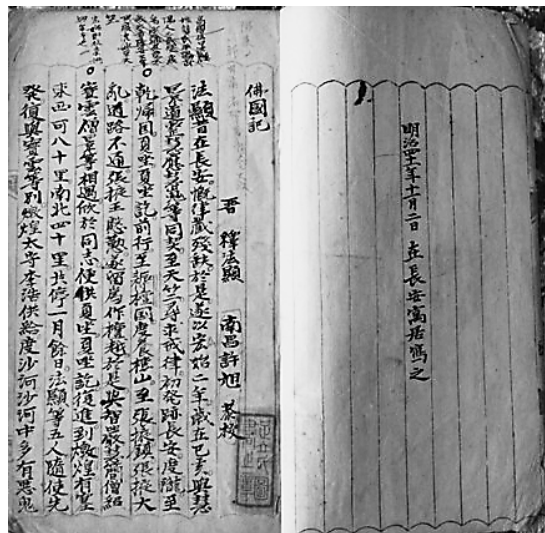 明治四十一年十一月二日 在長安寓居寫之
佛國記
晉 釋法顯 南昌許旭 恭校
法顯昔在長安慨律藏殘缺於是遂以宏始二年歲在己亥與慧
景道整慧應慧嵬等同契至天竺尋求戒律初發跡長安度隴至
乾歸國夏坐夏坐訖前行至耨檀國度養樓山至張掖鎮張掖大
亂道路不通張掖王慇懃遂留為作檀越於是與智嚴慧簡僧紹
寶雲僧景等相遇欣於同志便共夏坐夏坐訖復進到燉煌有塞
東西可八十里南北四十里共停一月餘日法顯等五人隨使先
發復與寶雲等別燉煌太守李浩供給度沙河沙河中多有惡鬼